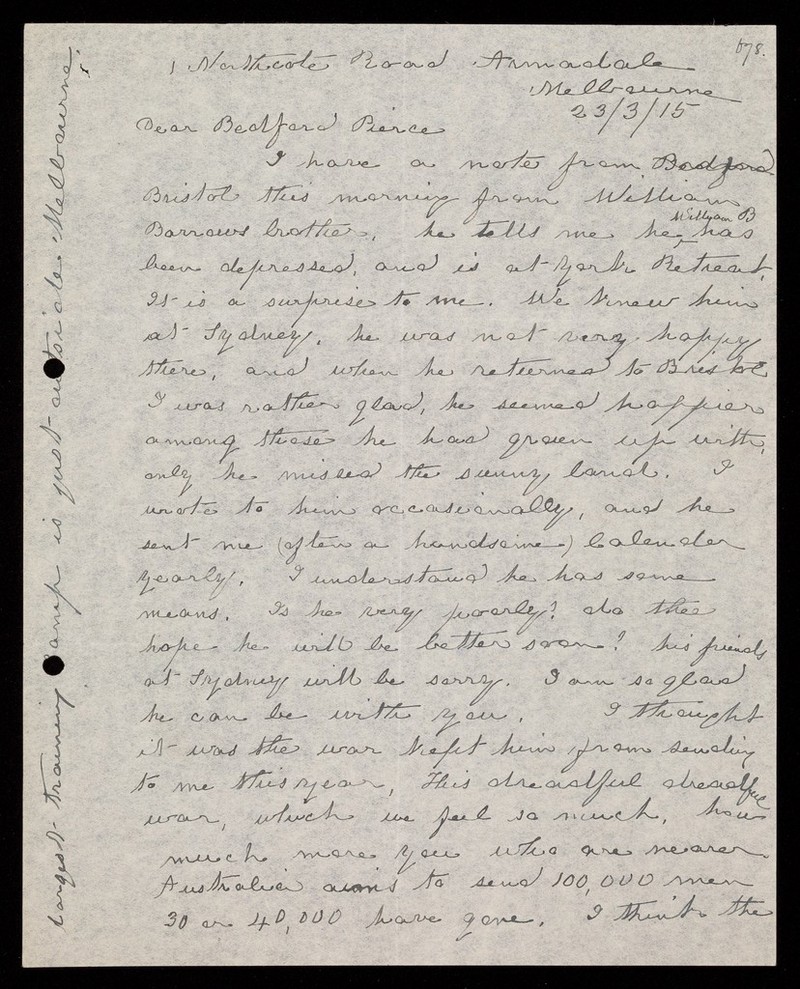 678.
1 Northcote Road Armadale
Melbourne
23/3/15
Dear Bedford Pierce
I have a note from Bedford
Bristol this morning from William
Barrows brother, he tells me he William B has
been depressed, and is at York Retreat,
It is a surprise to me. We knew him
at Sydney, he was not very happy
there, and when he returned to Bristol
I was rather glad, he seemed happier
among those he had grown up with,
only he missed the sunny land. I
wrote to him occasionally, and he
sent me (often a handsome) Calender
yearly. I understand he has some
means. Is he very poorly? do thee
hope he will be better soon? his friends
at Sydney will be sorry. I am so glad
he can be with you. I thought
it was the war kept him from sending
to me this year, This dreadful dreadful
war, which we feel so much, how
much more you who are nearer.
Australia aims to send 100,000 men
30 or 40,000 have gone. I think the
largest training camp is just outside Melbourne.